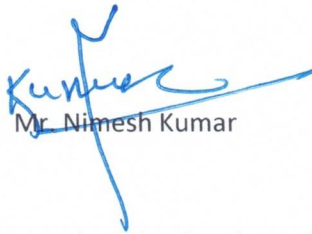 Kumar
Mr. Nimesh Kumar